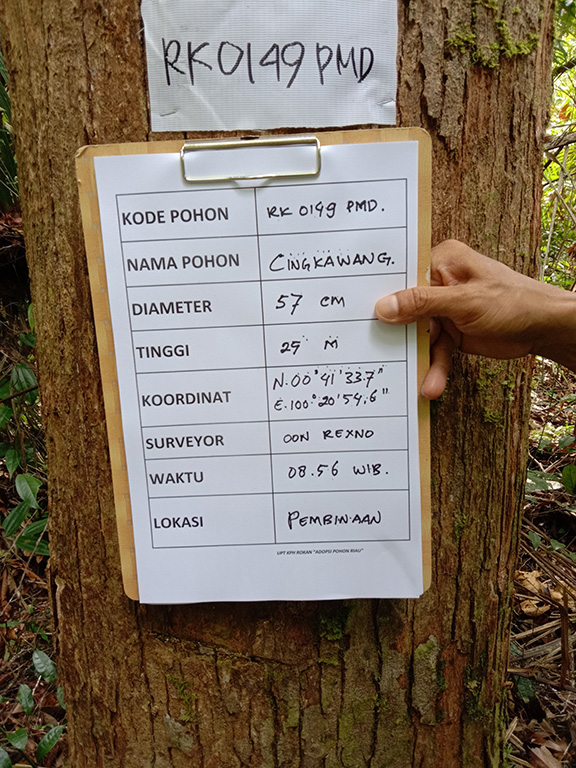 RK0149 PMD
KODE POHON RK 0149 PMD.
NAMA POHON CINGKAWANG.
DIAMETER 57 cm
TINGGI 25 M
KOORDINAT N.00°41'33.7"
E.100°20'54,6"
SURVEYOR OON REXNO
WAKTU 08.56 WIB.
LOKASI PEMBINAAN
UPT KPH ROKAN "ADOPSI POHON RIAU"